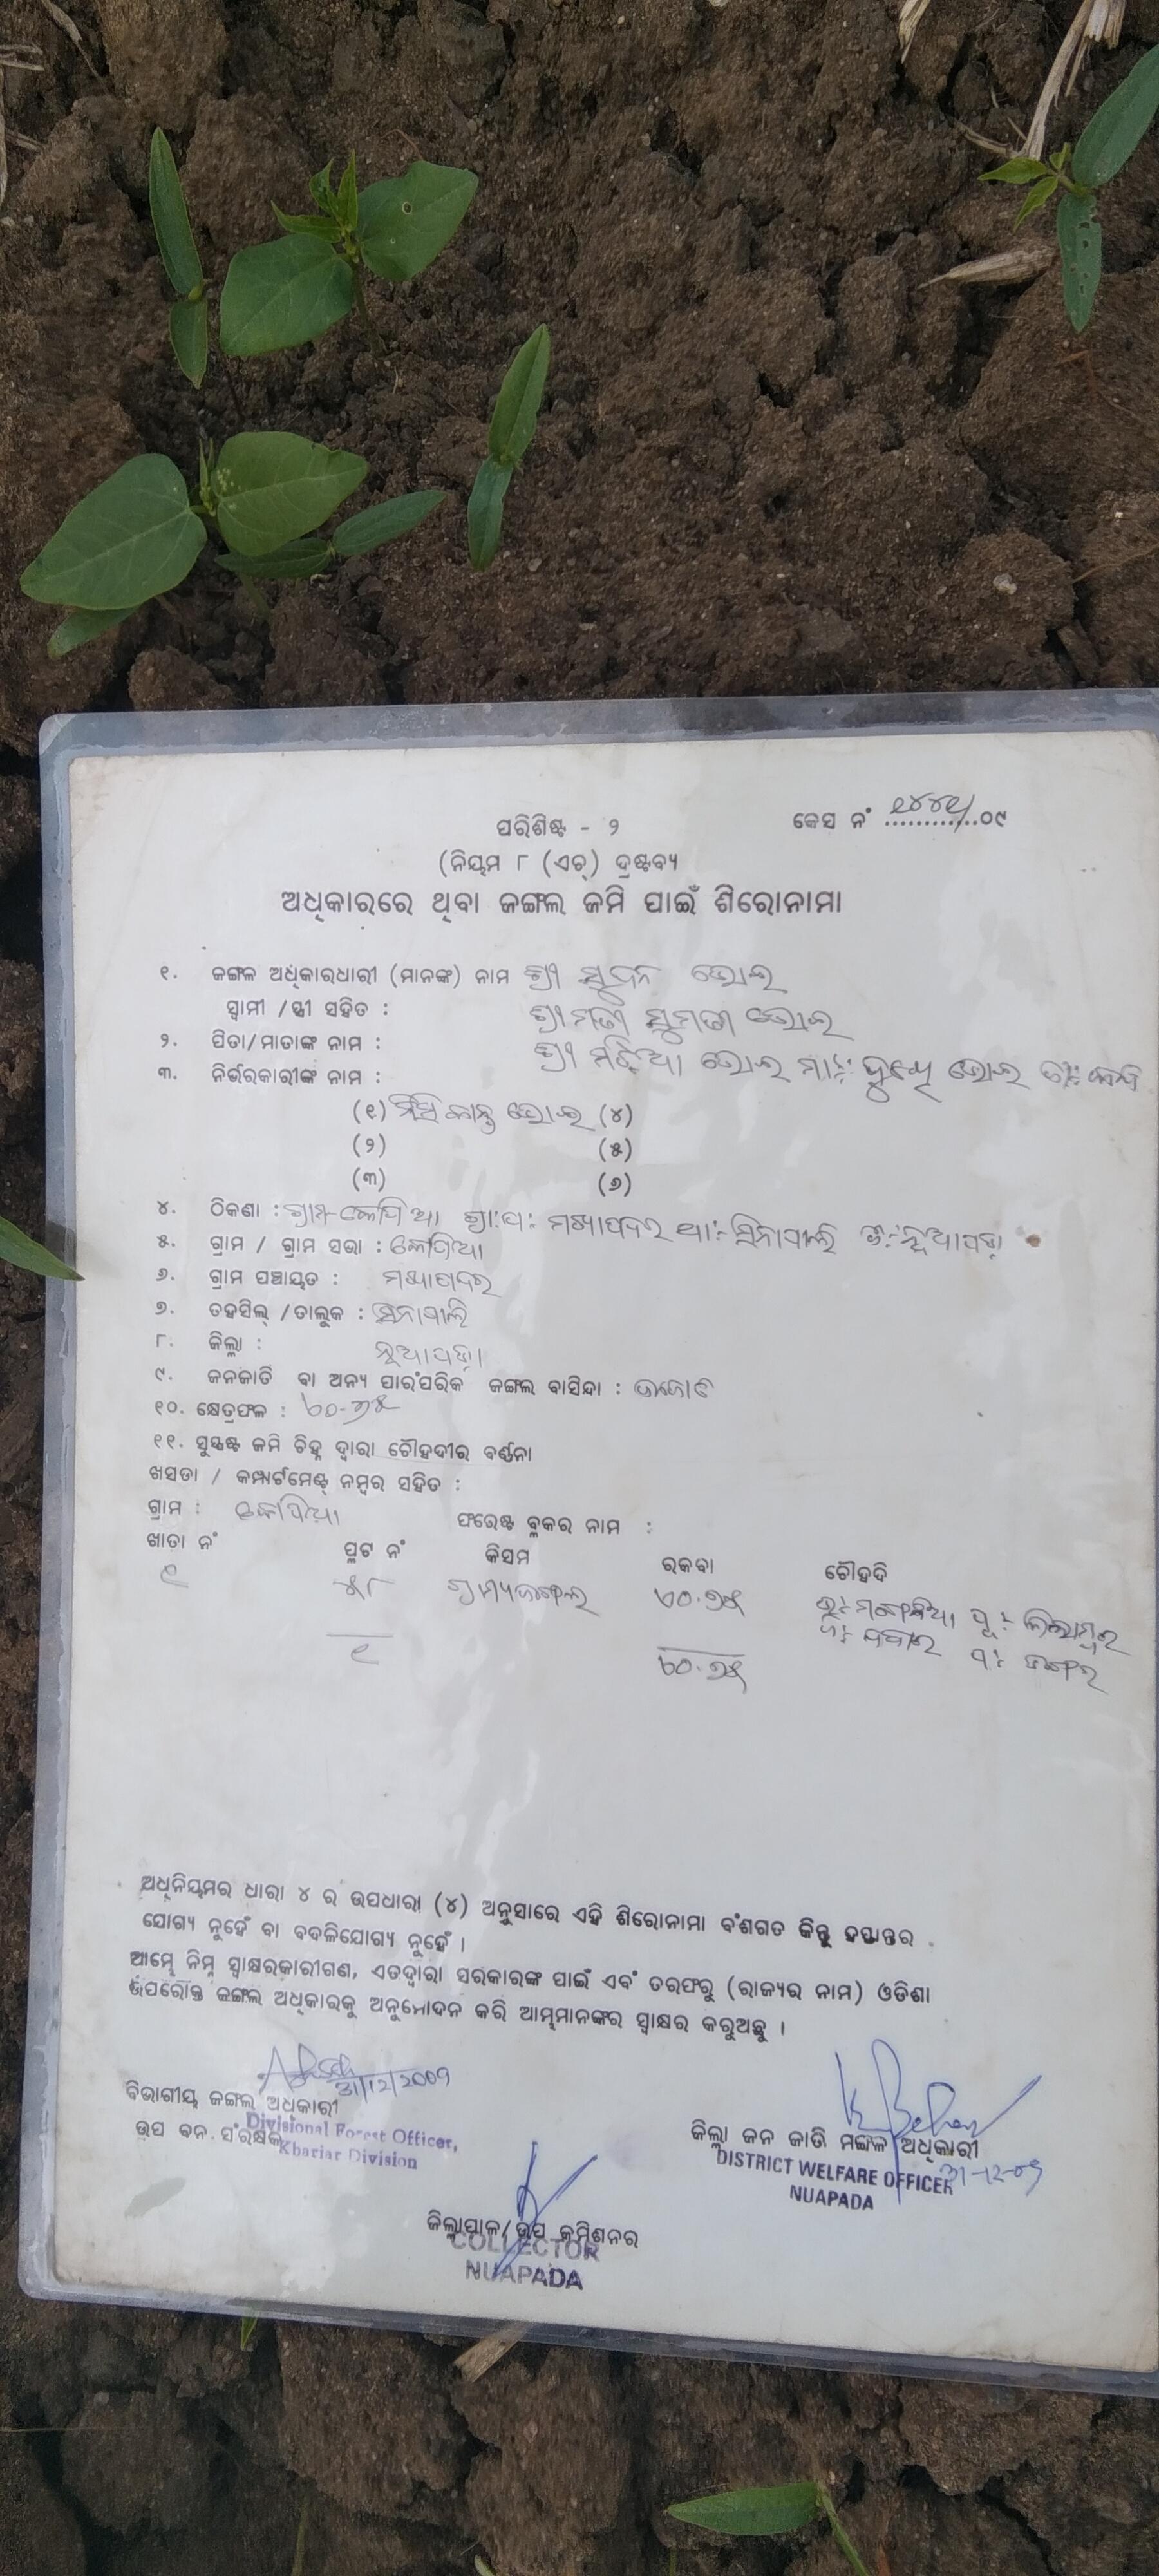 ପରିଶିଷ୍ଟ - ୨
କେସ ନଂ ............୦୯
(ନିୟମ ୮ (ଏଚ୍) ଦ୍ରଷ୍ଟବ୍ୟ
ଅଧିକାରରେ ଥିବା ଜଙ୍ଗଲ ଜମି ପାଇଁ ଶିରୋନାମା
୧. ଜଙ୍ଗଲ ଅଧିକାରଧାରୀ (ମାନଙ୍କ) ନାମ ଶ୍ରୀ ସୁଦନ ଭୋଇ
ସ୍ୱାମୀ /ସ୍ତ୍ରୀ ସହିତ : ଶ୍ରୀମତୀ ସୁମତୀ ଭୋଇ
୨. ପିତା/ମାତାଙ୍କ ନାମ : ଶ୍ରୀ ଭୋଇ ମାଃ ଭୋଇ
୩. ନିର୍ଭରକାରୀଙ୍କ ନାମ :
(୧) ଭୋଇ (୪)
(୨) (୫)
(୩) (୬)
୪. ଠିକଣା : ଗ୍ରାମ ଗ୍ରାଃପଃ ଥାଃ ସିନାପାଲି ଜିଃ ନୂଆପଡ଼ା
୫. ଗ୍ରାମ / ଗ୍ରାମ ସଭା :
୬. ଗ୍ରାମ ପଞ୍ଚାୟତ :
୭. ତହସିଲ୍ /ତାଲୁକ : ସିନାପାଲି
୮. ଜିଲ୍ଲା : ନୂଆପଡ଼ା
୯. ଜନଜାତି ବା ଅନ୍ୟ ପାରଂପରିକ ଜଙ୍ଗଲ ବାସିନ୍ଦା :
୧୦. କ୍ଷେତ୍ରଫଳ :
୧୧. ସୁସ୍ପଷ୍ଟ ଜମି ଚିହ୍ନ ଦ୍ୱାରା ଚୌହଦୀର ବର୍ଣ୍ଣନା
ଖସଡା / କମ୍ପାର୍ଟମେଣ୍ଟ୍ ନମ୍ବର ସହିତ :
ଗ୍ରାମ : ଫରେଷ୍ଟ ବ୍ଳକର ନାମ :
ଖାତା ନଂ ପ୍ଲଟ ନଂ କିସମ ରକବା ଚୌହଦି
୧ ୫୮ ଗ୍ରାମ୍ୟଜଙ୍ଗଲ
୧
ଅଧିନିୟମର ଧାରା ୪ ର ଉପଧାରା (୪) ଅନୁସାରେ ଏହି ଶିରୋନାମା ବଂଶଗତ କିନ୍ତୁ ହସ୍ତାନ୍ତର
ଯୋଗ୍ୟ ନୁହେଁ ବା ବଦଳିଯୋଗ୍ୟ ନୁହେଁ ।
ଆମ୍ଭେ ନିମ୍ନ ସ୍ୱାକ୍ଷରକାରୀଗଣ, ଏତଦ୍ୱାରା ସରକାରଙ୍କ ପାଇଁ ଏବଂ ତରଫରୁ (ରାଜ୍ୟର ନାମ) ଓଡିଶା
ଉପରୋକ୍ତ ଜଙ୍ଗଲ ଅଧିକାରକୁ ଅନୁମୋଦନ କରି ଆମ୍ଭମାନଙ୍କର ସ୍ୱାକ୍ଷର କରୁଅଛୁ ।
31/12/2009
ବିଭାଗୀୟ ଜଙ୍ଗଲ ଅଧିକାରୀ
ଉପ ବନ ସଂରକ୍ଷକ
Divisional Forest Officer,
Khariar Division
ଜିଲ୍ଲା ଜନ ଜାତି ମଙ୍ଗଳ ଅଧିକାରୀ
DISTRICT WELFARE OFFICER 31-12-09
NUAPADA
ଜିଲ୍ଲାପାଳ/ଉପ କମିଶନର
COLLECTOR
NUAPADA